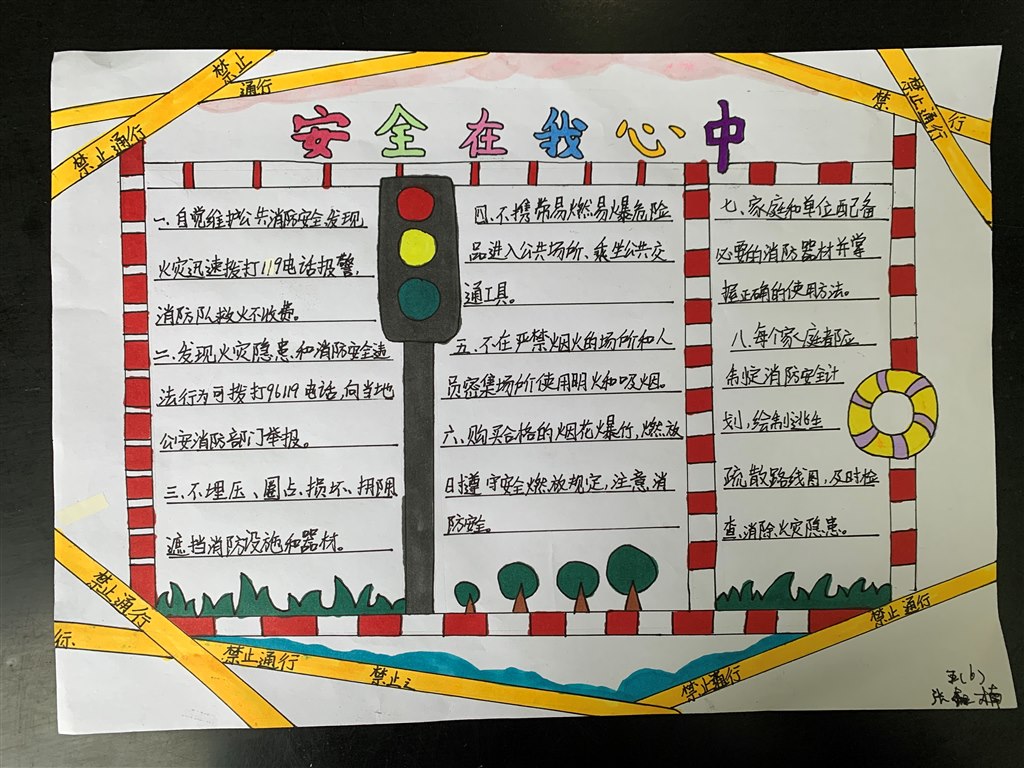 禁止
通行
禁止通行
禁
行
禁止通行
安全在我心中
一、自觉维护公共消防安全,发现
火灾迅速拨打119电话报警,
消防队救火不收费。
二、发现火灾隐患和消防安全违
法行为可拨打96119电话,向当地
公安消防部门举报。
三、不埋压、圈占、损坏、挪用
遮挡消防设施和器材。
四、不携带易燃易爆危险
品进入公共场所、乘坐公共交
通工具。
五、不在严禁烟火的场所和人
员密集场所使用明火和吸烟。
六、购买合格的烟花爆竹,燃放
时遵守安全燃放规定,注意消
防安全。
七、家庭和单位配备
必要的消防器材并掌
握正确的使用方法。
八、每个家庭都应
制定消防安全计
划,绘制逃生
疏散路线图,及时检
查、消除火灾隐患。
禁止通行
行
禁止通行
禁止
禁止通行
禁止通行
五(6)
张 楠